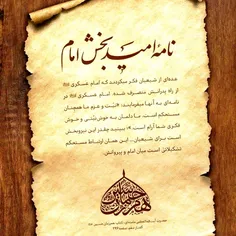 نامه امیدبخش امام
عده‌ای از شیعیان فکر میکردند که امام عسکری
از راه پدرانش منصرف شده. امام عسکری در
نامه‌ای به آنها میفرمایند: «نیّت و عزم ما همچنان
مستحکم است. ما دلمان به خوش‌نیّتی و خوش
فکری شما آرام است.» ببینید چقدر این نیروبخش
است برای شیعیان... این همان ارتباط مستحکم
تشکیلاتی است میان امام و پیروانش.